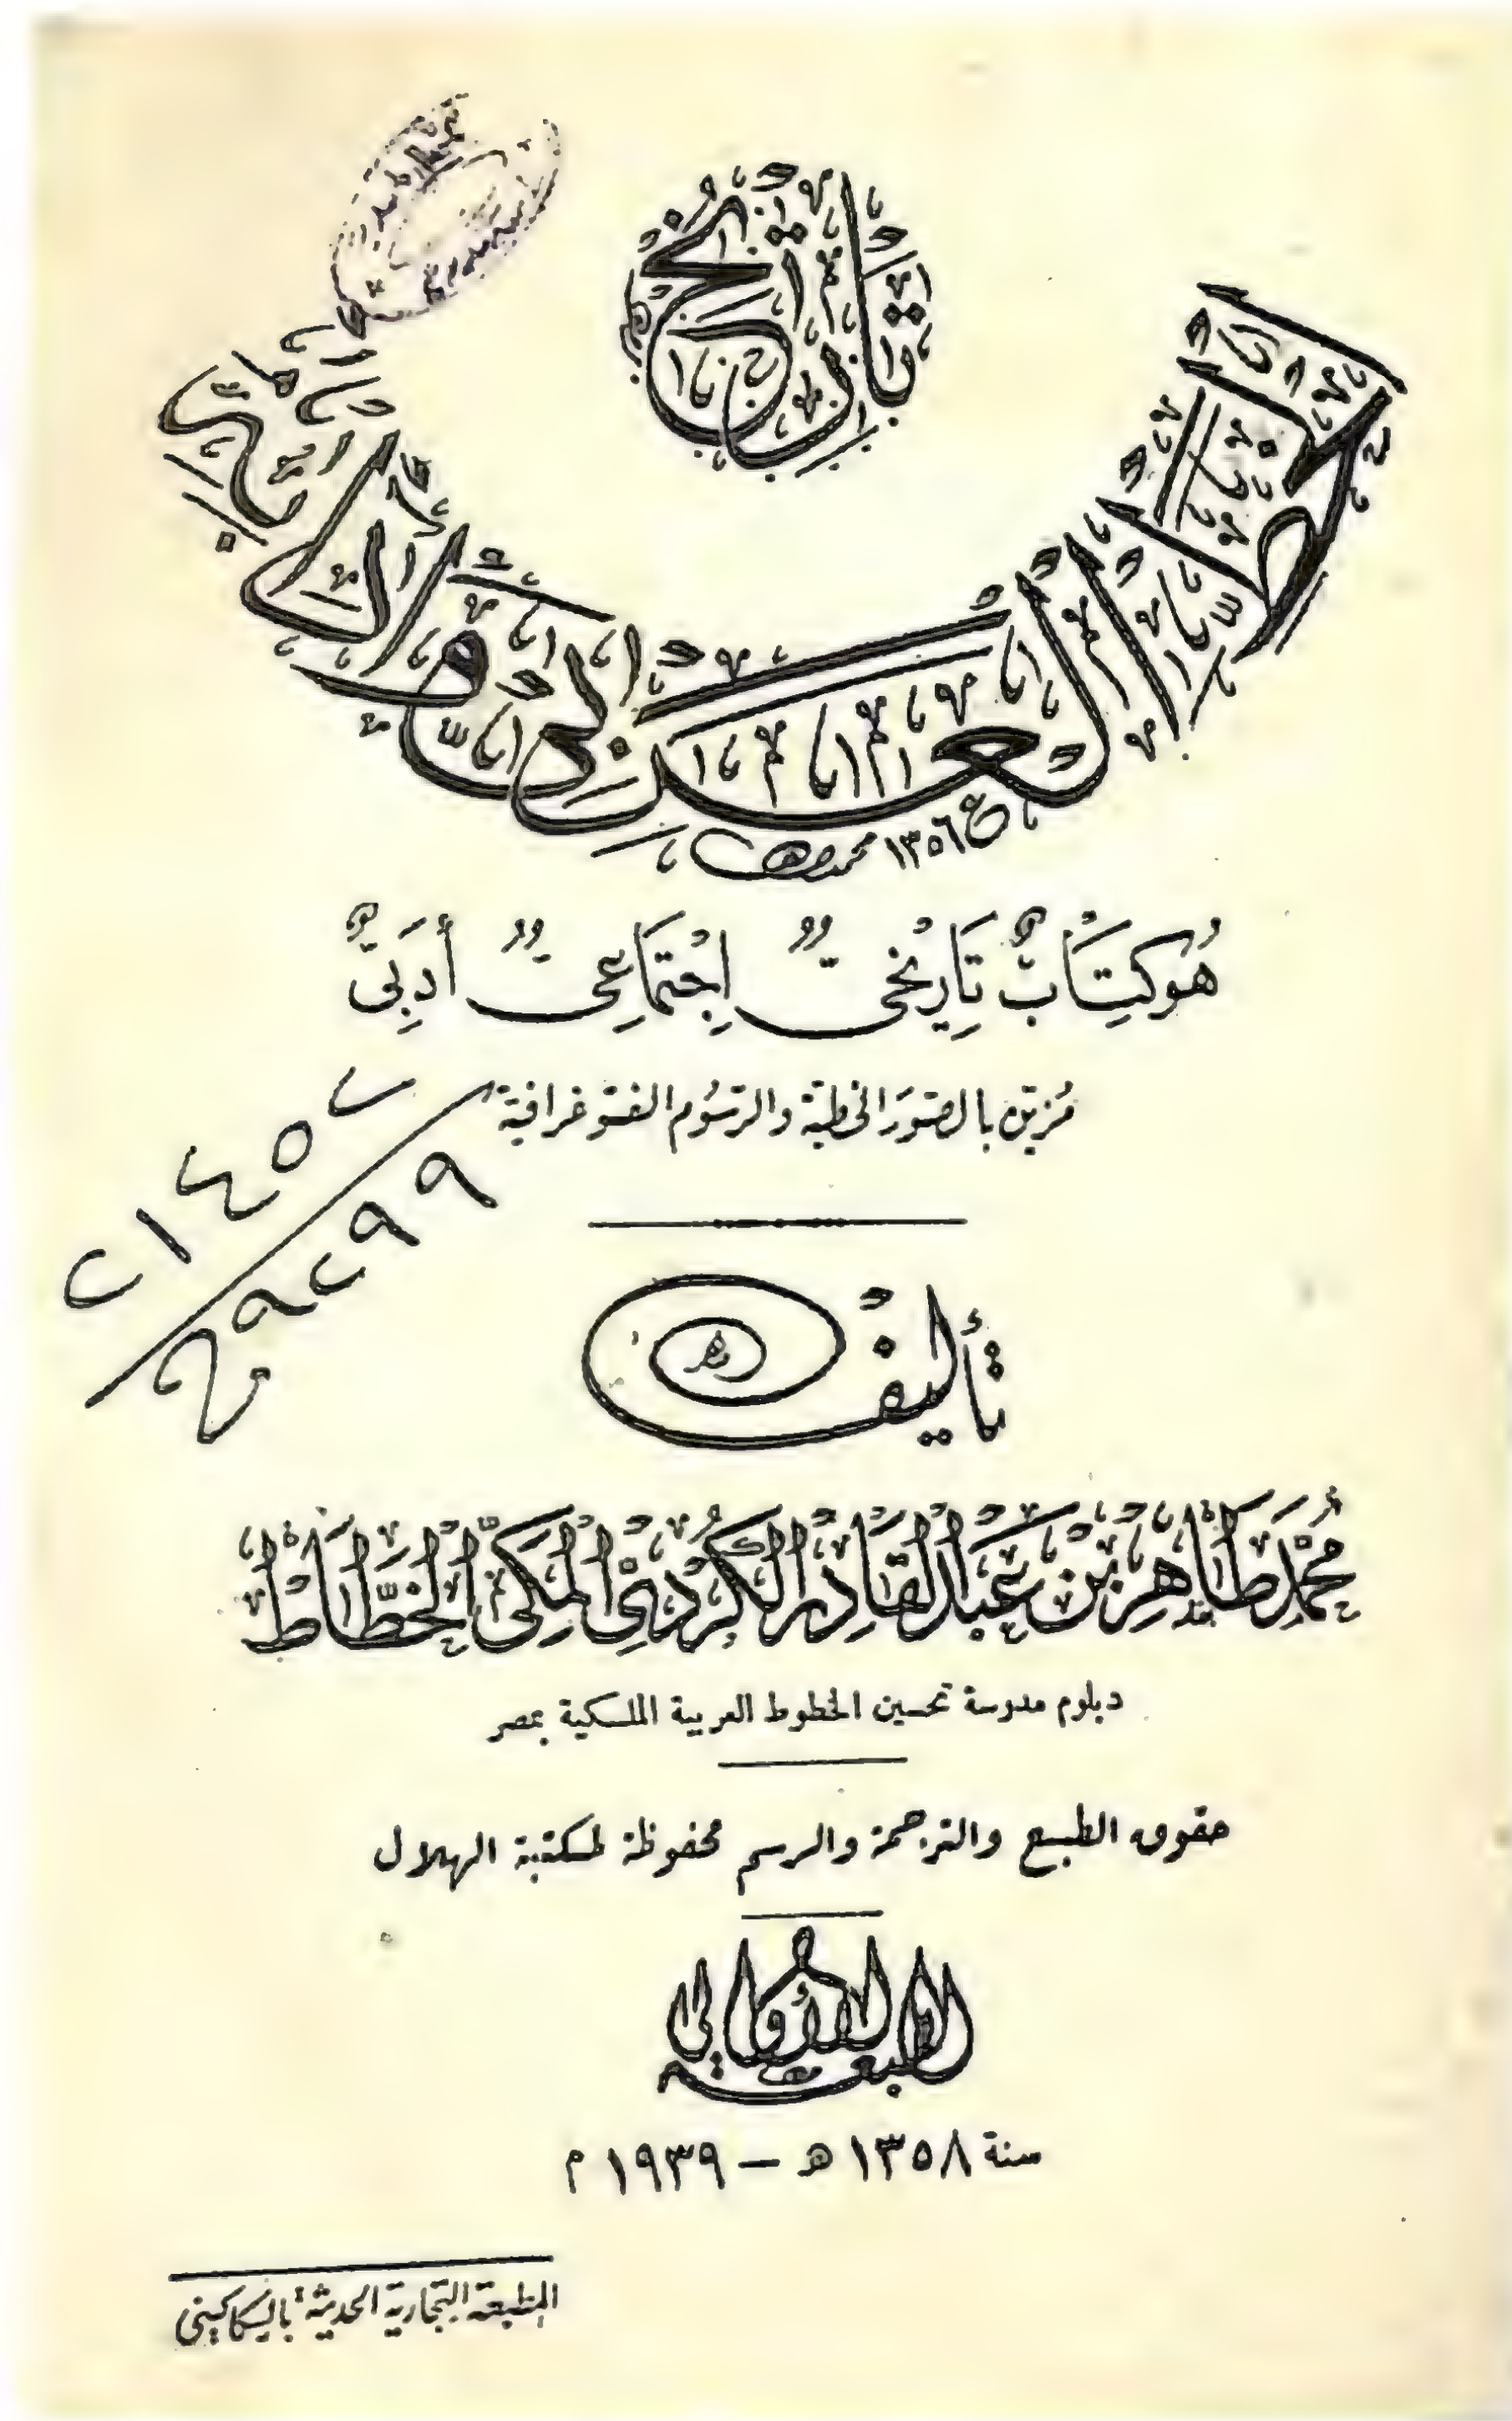 تاريخ
الخط العربي وآدابه
١٣٥٦
هُوَ كِتَابٌ تَارِيْخِيٌّ اِجْتِمَاعِيٌّ أَدَبِيٌّ
مُزيّن بالصّوَر الخطيّة والرّسُوم الفتوغرافية
٢١٤٥٢
٢٩٢٩٩
تأليف
مُحَمَّد طَاهِر بْن عَبْد القَادِر الكُرْدِيّ المَكّيّ الخَطَّاط
دبلوم مدرسة تحسين الخطوط العربية الملكية بمصر
حقوق الطبع والترجمة والرسم محفوظة لمكتبة الهلال
الطبعة الأولى
سنة ١٣٥٨ هـ — ١٩٣٩ م
المطبعة التجارية الحديثة بالسكاكيني